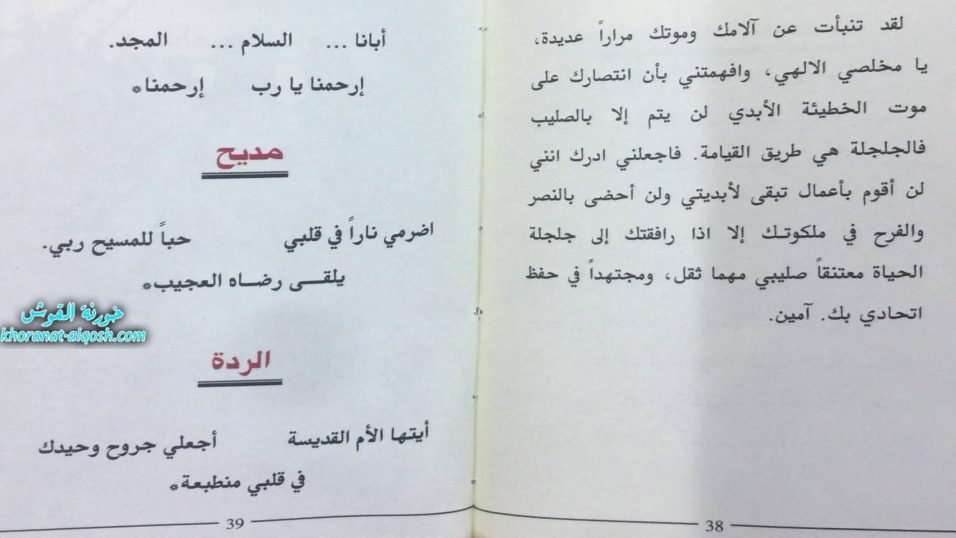 لقد تنبأت عن آلامك وموتك مراراً عديدة،
يا مخلصي الالهي، وافهمتني بأن انتصارك على
موت الخطيئة الأبدي لن يتم إلا بالصليب
فالجلجلة هي طريق القيامة. فاجعلني ادرك انني
لن أقوم بأعمال تبقى لأبديتي ولن أحضى بالنصر
والفرح في ملكوتك إلا اذا رافقتك إلى جلجلة
الحياة معتنقاً صليبي مهما ثقل، ومجتهداً في حفظ
اتحادي بك. آمين.
38
أبانا ... السلام ... المجد.
إرحمنا يا رب إرحمنا*
مديح
اضرمي ناراً في قلبي حباً للمسيح ربي.
يلقى رضاه العجيب*
الردة
أيتها الأم القديسة أجعلي جروح وحيدك
في قلبي منطبعة*
39
خورنة القوش
khoranat-alqosh.com